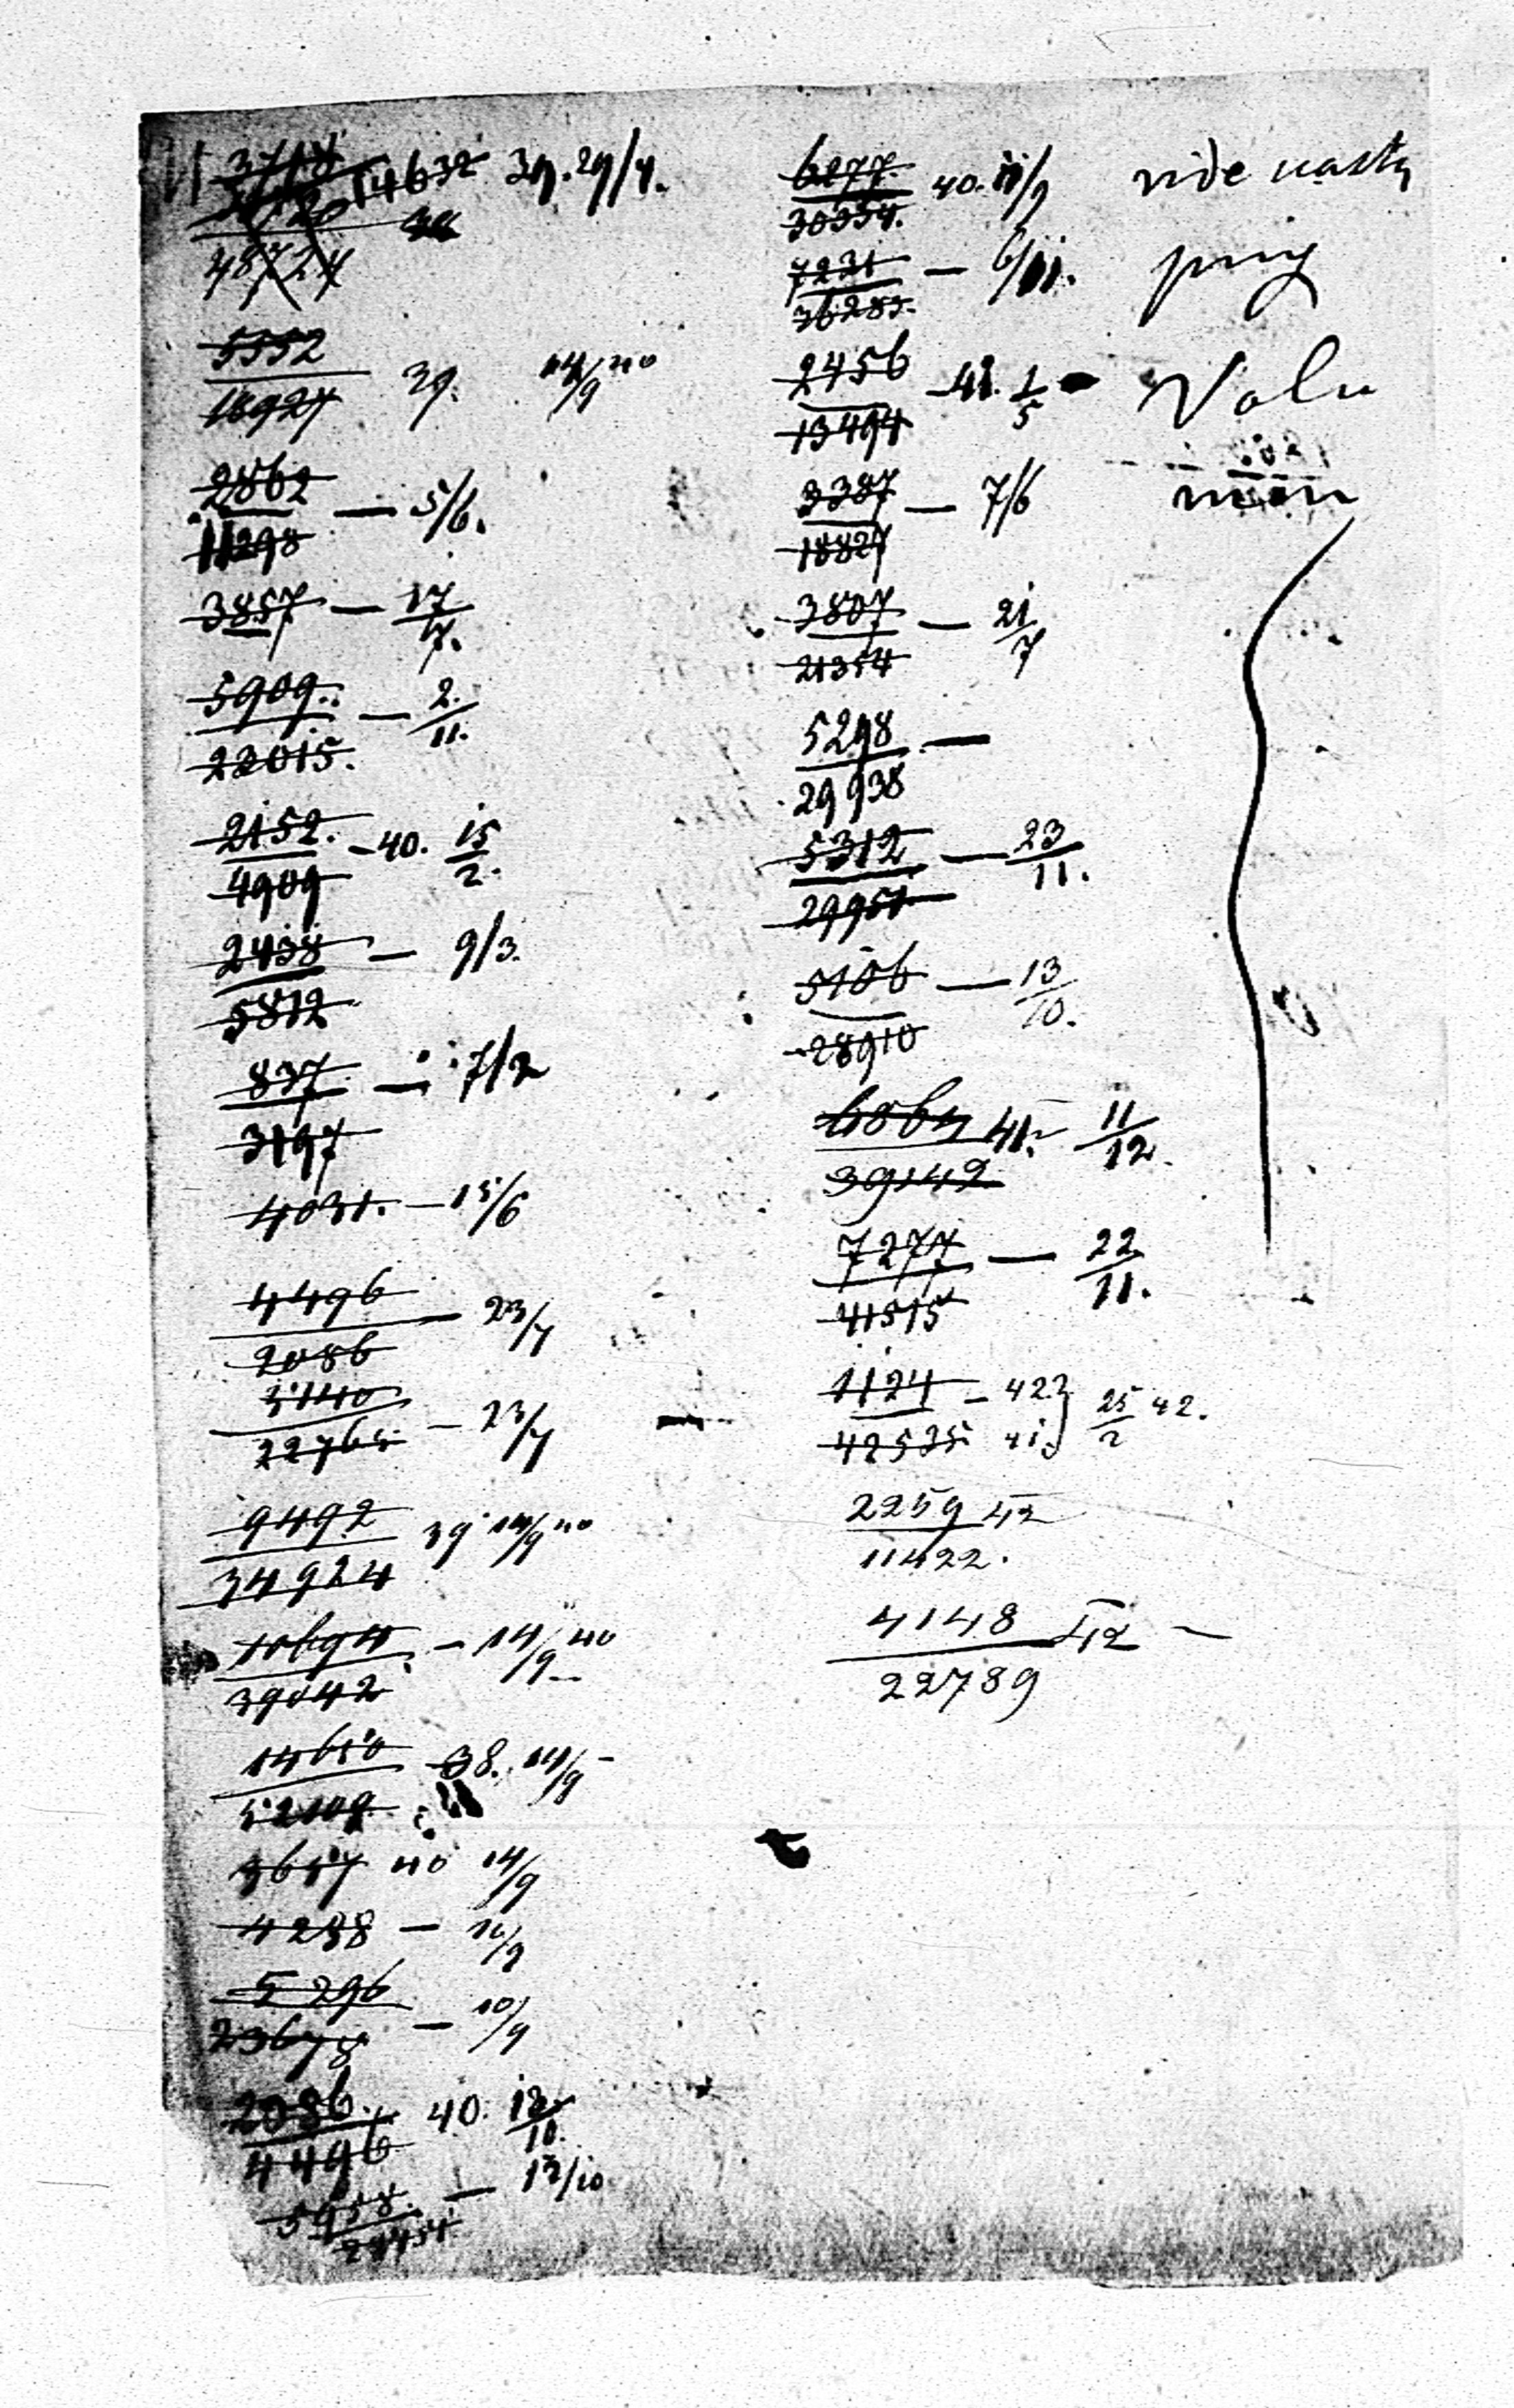 14632 39. 29/4.
48724
5552
16927 39. 14/9 40
2862
11298 — 5/6.
3857 — 17/7.
5909. — 2./11.
22015.
2152. — 40. 15/2.
4909
2438 — 9/3.
5812
837 — 7/2
3197
4031. — 15/6
4496 — 23/7
2086
5140 — 23/7
22765
9492 39 14/9 40
34924
10694 — 14/9 40
39042
14650 38. 14/9 —
52109
3657 40 14/9
4238 — 10/9
5296 — 10/9
23678
2086. 40. 12/10.
4496
5458. — 12/10
6277. 40. 11/9
30354.
7231 — 6/11.
36285.
2456 — 41. 1/5
13494
3387 — 7/6
18827
3807 — 21/7
21354
5298 —
29938
5312 — 23/11.
29951
5106 — 13/10.
28910
6864 41. — 11/12.
39142
7277 — 22/11.
41515
1124 — 42 } 25/2 42.
42535 41
2259 42
11422.
4148 42 —
22789
vide
Volu
men